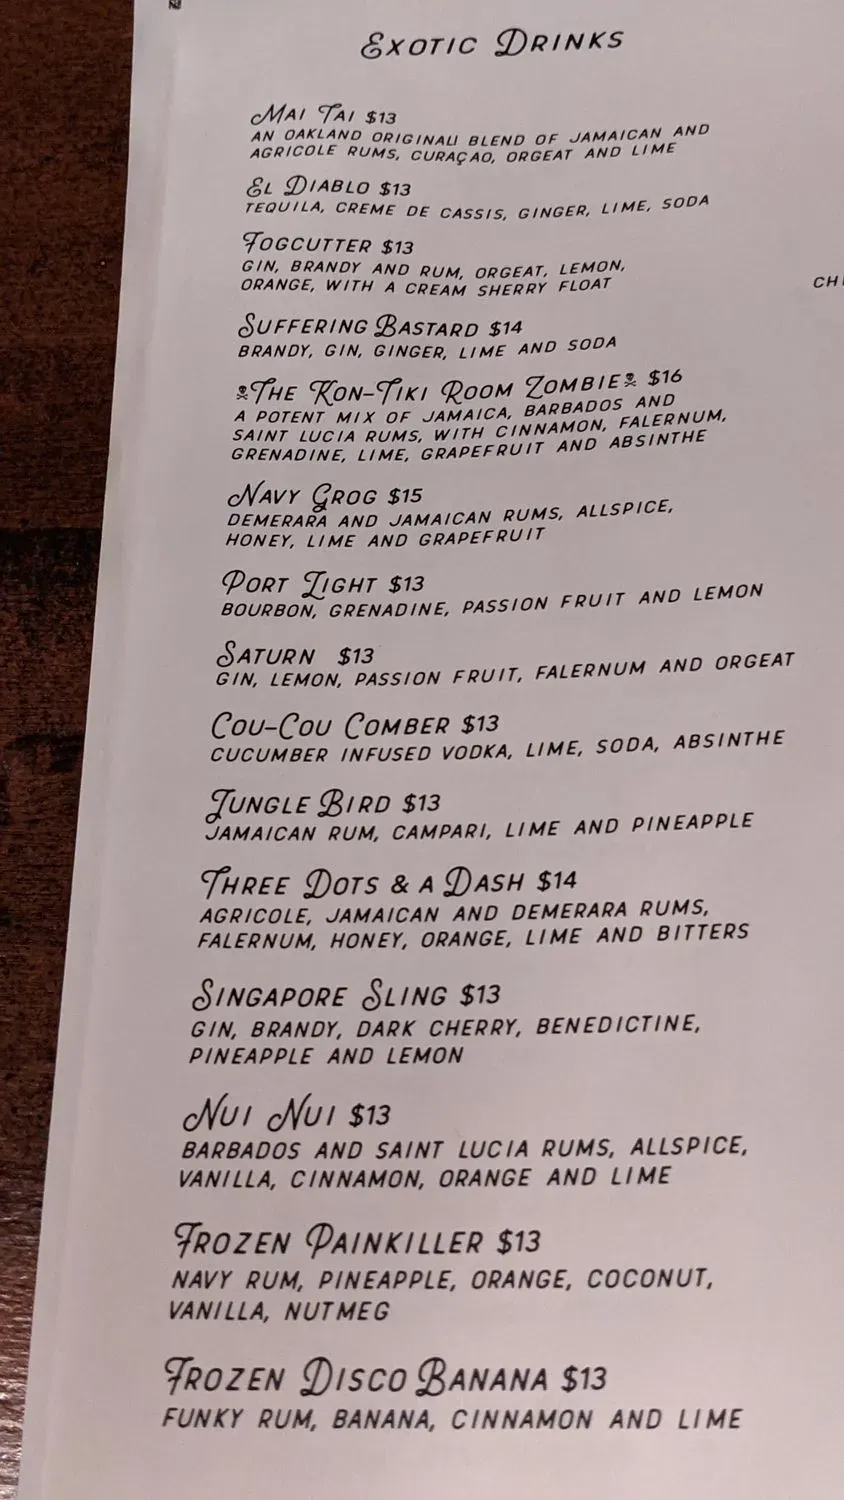 Exotic Drinks
Mai Tai $13
AN OAKLAND ORIGINAL! BLEND OF JAMAICAN AND
AGRICOLE RUMS, CURAÇAO, ORGEAT AND LIME
El Diablo $13
TEQUILA, CREME DE CASSIS, GINGER, LIME, SODA
Fogcutter $13
GIN, BRANDY AND RUM, ORGEAT, LEMON,
ORANGE, WITH A CREAM SHERRY FLOAT
Suffering Bastard $14
BRANDY, GIN, GINGER, LIME AND SODA
☠The Kon-Tiki Room Zombie☠ $16
A POTENT MIX OF JAMAICA, BARBADOS AND
SAINT LUCIA RUMS, WITH CINNAMON, FALERNUM,
GRENADINE, LIME, GRAPEFRUIT AND ABSINTHE
Navy Grog $15
DEMERARA AND JAMAICAN RUMS, ALLSPICE,
HONEY, LIME AND GRAPEFRUIT
Port Light $13
BOURBON, GRENADINE, PASSION FRUIT AND LEMON
Saturn $13
GIN, LEMON, PASSION FRUIT, FALERNUM AND ORGEAT
Cou-Cou Comber $13
CUCUMBER INFUSED VODKA, LIME, SODA, ABSINTHE
Jungle Bird $13
JAMAICAN RUM, CAMPARI, LIME AND PINEAPPLE
Three Dots & a Dash $14
AGRICOLE, JAMAICAN AND DEMERARA RUMS,
FALERNUM, HONEY, ORANGE, LIME AND BITTERS
Singapore Sling $13
GIN, BRANDY, DARK CHERRY, BENEDICTINE,
PINEAPPLE AND LEMON
Nui Nui $13
BARBADOS AND SAINT LUCIA RUMS, ALLSPICE,
VANILLA, CINNAMON, ORANGE AND LIME
Frozen Painkiller $13
NAVY RUM, PINEAPPLE, ORANGE, COCONUT,
VANILLA, NUTMEG
Frozen Disco Banana $13
FUNKY RUM, BANANA, CINNAMON AND LIME